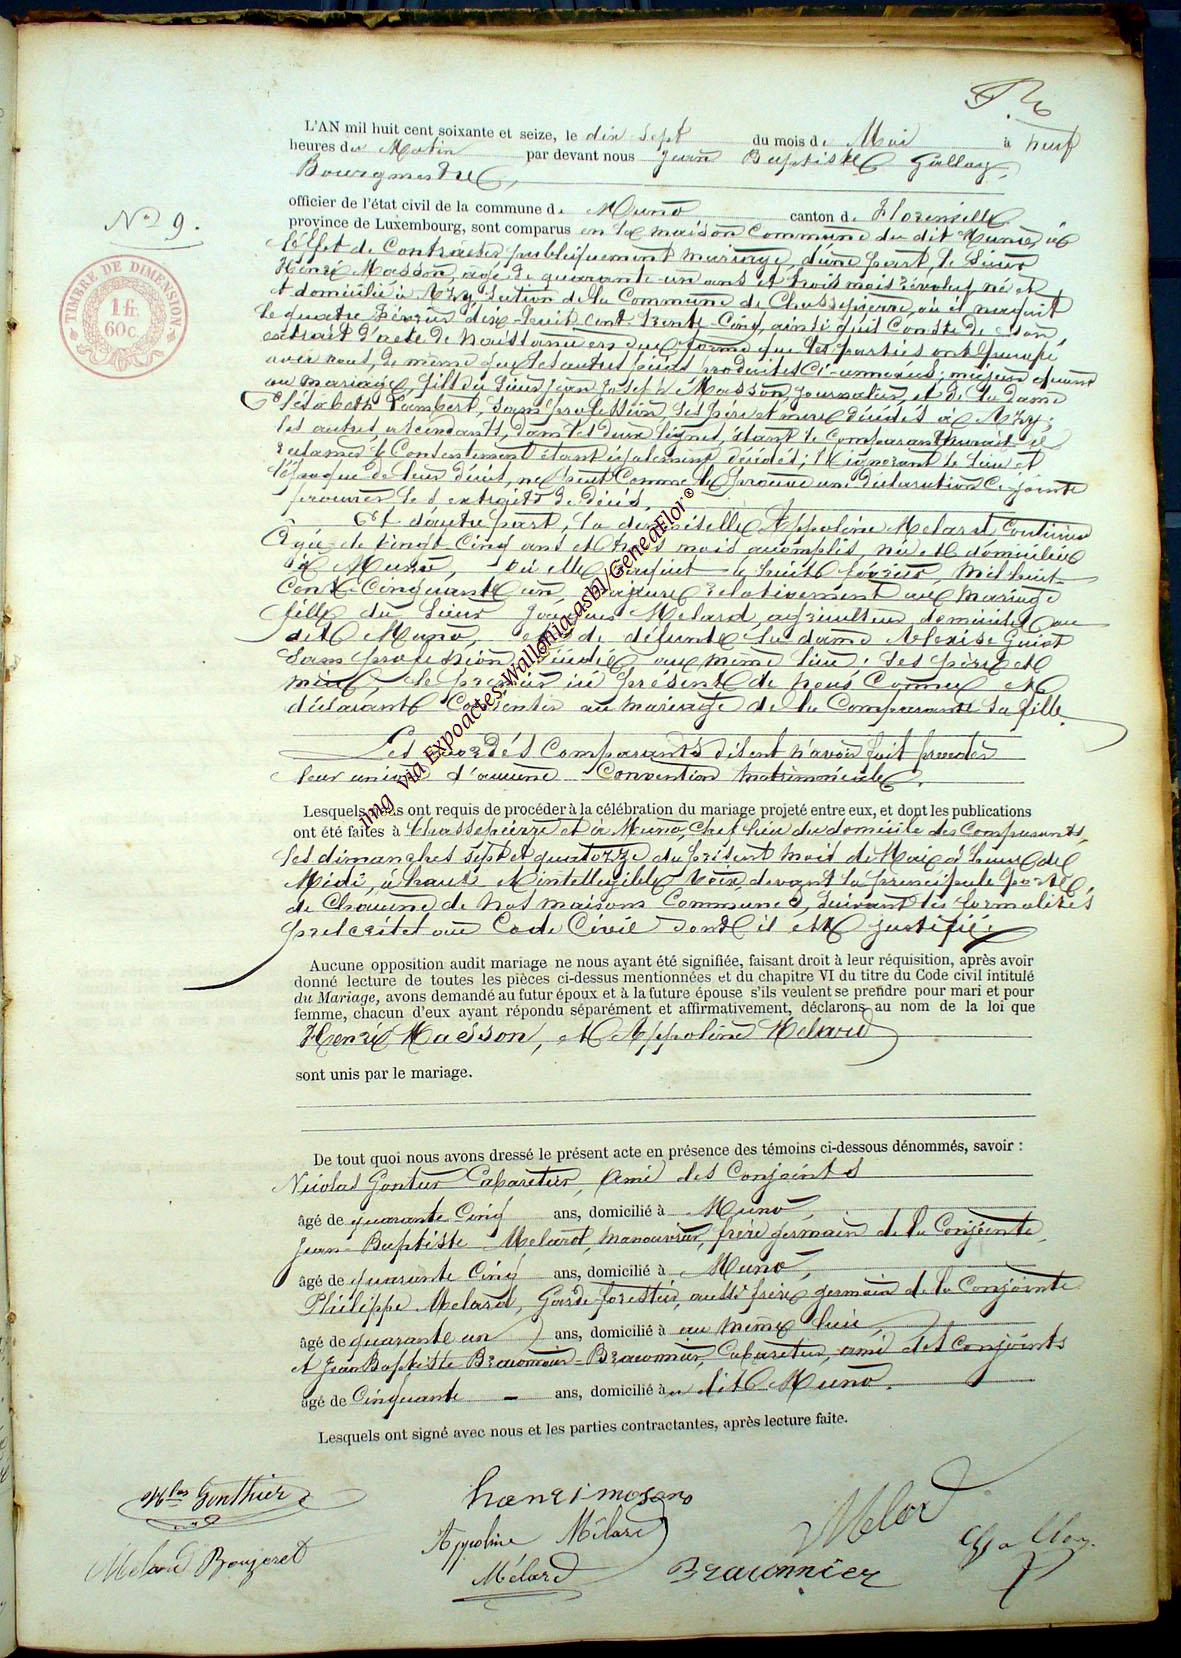 L'AN mil huit cent soixante et seize, le dix sept du mois de Mai à neuf
heures du Matin par devant nous Jean Baptiste Gallay,
Bourgmestre,
officier de l'état civil de la commune de Muno canton de Florenville
N° 9.
province de Luxembourg, sont comparus en la maison Commune du dit Muno, à
l'effet de Contracter publiquement mariage, d'une part, le Sieur
TIMBRE DE DIMENSION
1 fr.
60 c.
Henri Masson, agé de quarante un ans et trois mois révolus né et
et domicilié à Azy, section de la Commune de Chassepierre, où il naquit
le quatre Février dix-huit cent trente-cinq, ainsi qu'il Conste de son
extrait d'acte de naissance en due forme que les parties ont
avec nous, de même que les autres pièces produites ci-annexées; majeur quant
au mariage, fill du Sieur Jean Joseph Masson, journalier, et de la dame
Elisabeth Lambert, Sans profession, Ses père et mère décédés à Azy;
les autres ascendants, dans les deux lignes, étant le Comparant
le Consentement étant également décédés; et ignorant le lieu et
l'époque de leur décès, ne peut Comme le prouve une déclaration ci-jointe
prouver les extraits de décès.
Et d'autre part, la demoiselle Appoline Melard, Couturière
Agée de vingt Cinq ans et trois mois accomplis, née et domiciliée
à Muno, où elle naquit le huit février, mil huit
Cent Cinquante un, majeure relativement au mariage
fille du Sieur Jacques Melard, agriculteur, domicilié au
dit Muno, et de défunte la dame Alexise Guiot
Sans profession décédée au même lieu, ses père et
mère, le premier ici présent de nous Connu et
déclarant Consentir au mariage de la Comparante Sa fille.
Les Comparants disent n'avoir fait précéder
leur union d'aucune Convention matrimoniale.
img via Expoactes-Wallonia asbl/GeneaFlor®
Lesquels nous ont requis de procéder à la célébration du mariage projeté entre eux, et dont les publications
ont été faites à Chassepierre et à Muno, Chef lieu du domicile des Comparants,
les dimanches sept et quatorze du présent mois de Mai à l'heure de
Midi, à haute et intelligible voix devant la principale porte
de Chacune de nos maisons Communes, suivant les formalités
prescrites au Code Civil dont il est justifié.
Aucune opposition audit mariage ne nous ayant été signifiée, faisant droit à leur réquisition, après avoir
donné lecture de toutes les pièces ci-dessus mentionnées et du chapitre VI du titre du Code civil intitulé
du Mariage, avons demandé au futur époux et à la future épouse s'ils veulent se prendre pour mari et pour
femme, chacun d'eux ayant répondu séparément et affirmativement, déclarons au nom de la loi que
Henri Masson, et Appoline Melard
sont unis par le mariage.
De tout quoi nous avons dressé le présent acte en présence des témoins ci-dessous dénommés, savoir :
Nicolas Gontier Cabaretier, ami des Conjoints
âgé de quarante Cinq ans, domicilié à Muno,
Jean-Baptiste Melard, manouvrier, frère germain de la Conjointe,
âgé de quarante Cinq ans, domicilié à Muno,
Philippe Melard, Garde forestier, aussi frère germain de la Conjointe
âgé de quarante un ans, domicilié à au même lieu,
et Jean Baptiste Braconnier-Braconnier, Cabaretier, ami des Conjoints
âgé de Cinquante - ans, domicilié à au dit Muno.
Lesquels ont signé avec nous et les parties contractantes, après lecture faite.
Nlas Gonthier henri mason
Appoline Mélard Melard
Melard Boujeret Mélard Braconnier Gallay